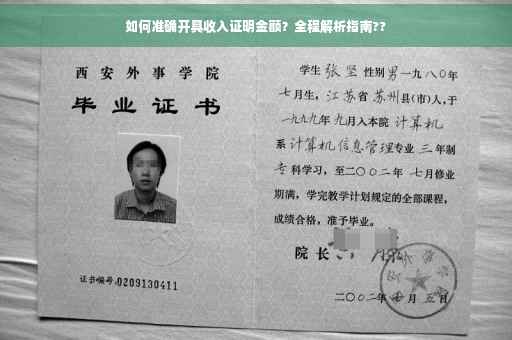 如何准确开具收入证明金额？全程解析指南??
西安外事学院
毕业证书
证书编号:0209130411
学生 张坚 性别男一九八〇年
七月生，江苏省 苏州县(市)人,于
一九九九年 九月入本院 计算机
系 计算机信息管理专业 三 年制
专 科学习，至二〇〇二年 七月修业
期满，学完教学计划规定的全部课程，
成绩合格，准予毕业。
院 长
二〇〇二年 月 五日